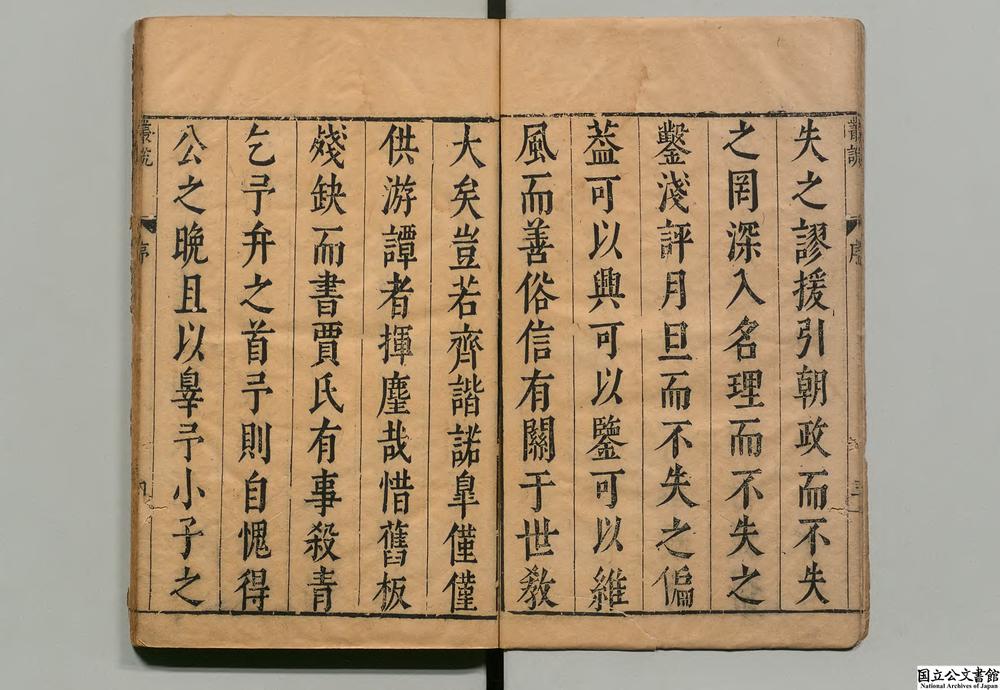 失之謬援引朝政而不失
之罔深入名理而不失之
鑿淺評月旦而不失之偏
葢可以興可以鑒可以維
風而善俗信有關于世教
大矣豈若齊諧諾臯僅僅
供游譚者揮麈哉惜舊板
殘缺而書賈氏有事殺青
乞予弁之首予則自愧得
公之晚且以辜予小子之
叢說
序
三
叢說
序
国立公文書館
National Archives of Japan